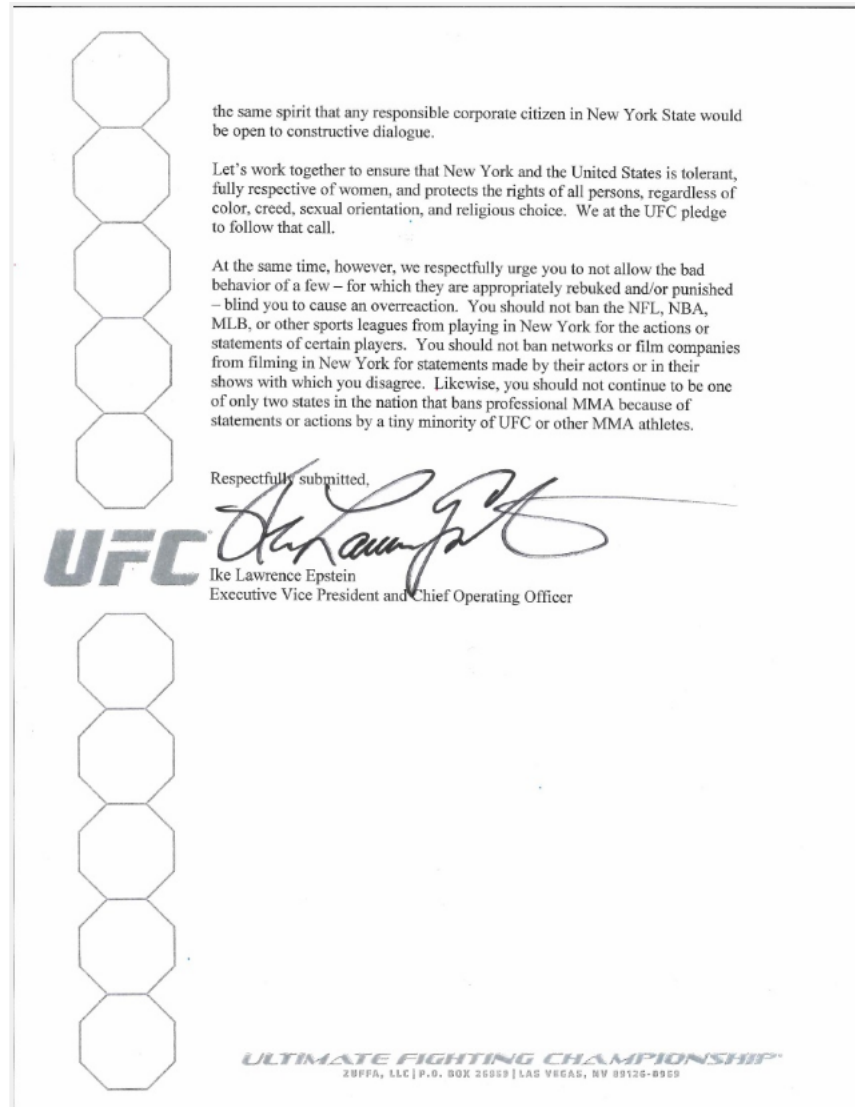 the same spirit that any responsible corporate citizen in New York State would
be open to constructive dialogue.
Let's work together to ensure that New York and the United States is tolerant,
fully respective of women, and protects the rights of all persons, regardless of
color, creed, sexual orientation, and religious choice. We at the UFC pledge
to follow that call.
At the same time, however, we respectfully urge you to not allow the bad
behavior of a few – for which they are appropriately rebuked and/or punished
– blind you to cause an overreaction. You should not ban the NFL, NBA,
MLB, or other sports leagues from playing in New York for the actions or
statements of certain players. You should not ban networks or film companies
from filming in New York for statements made by their actors or in their
shows with which you disagree. Likewise, you should not continue to be one
of only two states in the nation that bans professional MMA because of
statements or actions by a tiny minority of UFC or other MMA athletes.
Respectfully submitted,
UFC
Ike Lawrence Epstein
Executive Vice President and Chief Operating Officer
ULTIMATE FIGHTING CHAMPIONSHIP
ZUFFA, LLC | P.O. BOX 26959 | LAS VEGAS, NV 89126-0959